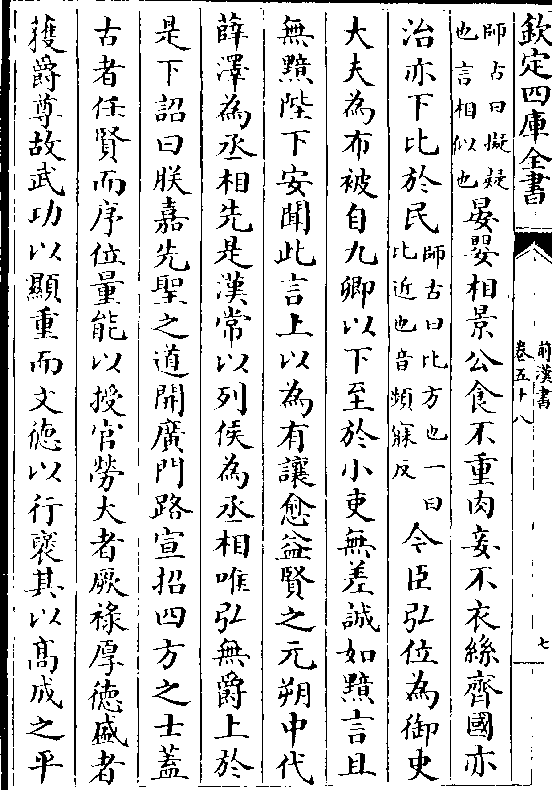 欽定四庫全書
前漢書
卷五十八
七
師古曰擬疑
也言相似也
晏嬰相景公食不重肉妾不衣絲齊國亦
治亦下比於民
師古曰比方也一曰
比近也音頻寐反
今臣弘位為御史
大夫為布被自九卿以下至於小吏無差誠如黯言且
無黯陛下安聞此言上以為有讓愈益賢之元朔中代
薛澤為丞相先是漢常以列侯為丞相唯弘無爵上於
是下詔曰朕嘉先聖之道開廣門路宣招四方之士蓋
古者任賢而序位量能以授官勞大者厥祿厚德盛者
獲爵尊故武功以顯重而文德以行襃其以髙成之平